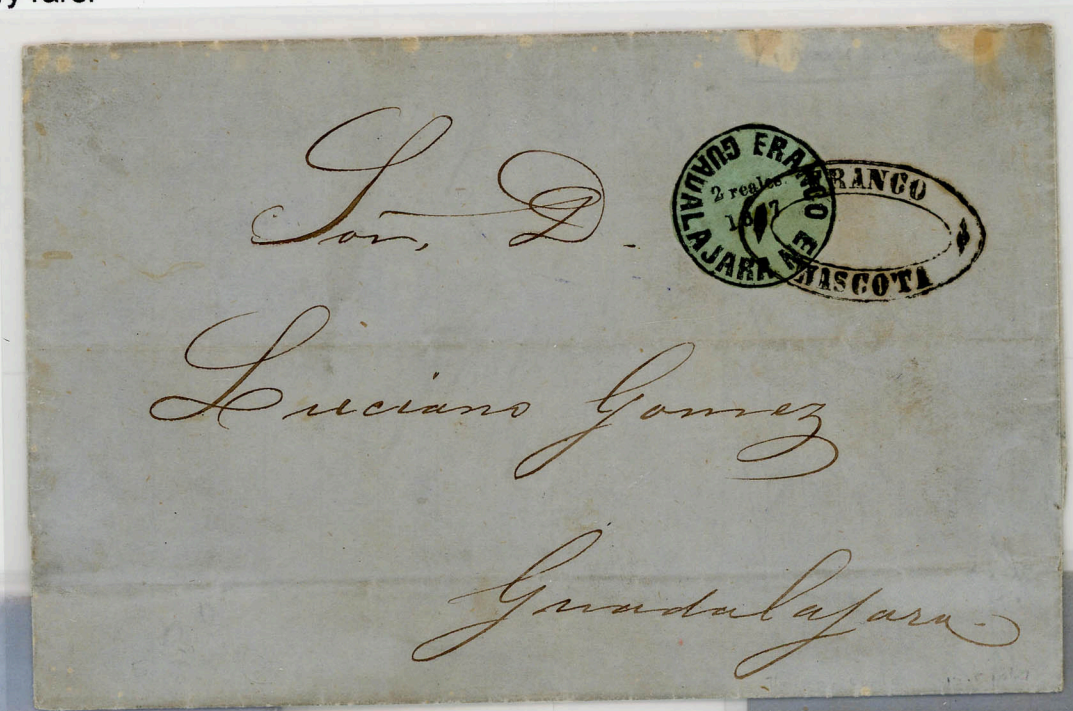 rare.
Sor. D.
FRANCO EN GUADALAJARA
2 reales.
1867
FRANCO
MASCOTA
Luciano Gomez
Guadalajara.